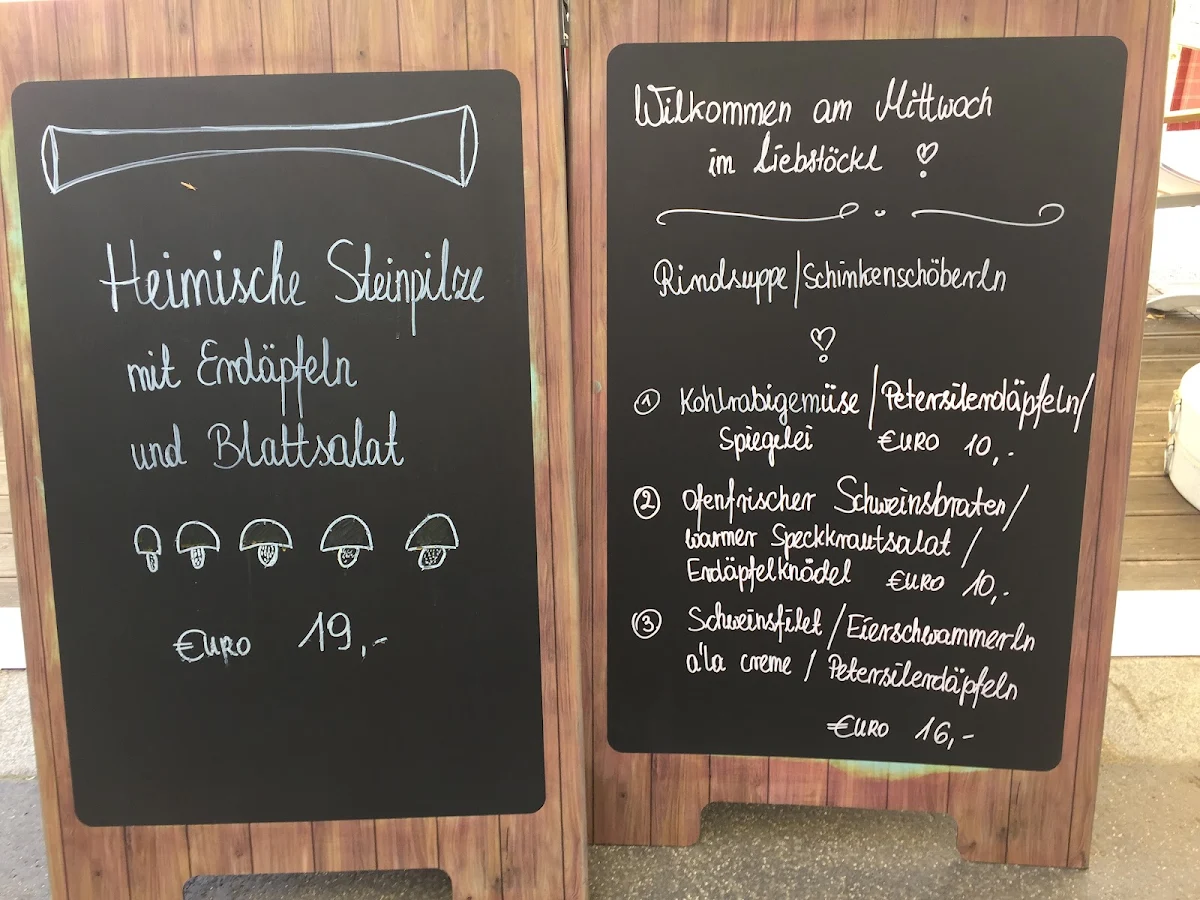 Heimische Steinpilze
mit Erdäpfeln
und Blattsalat
€URO 19,-
Willkommen am Mittwoch
im Liebstöckl
Rindsuppe/Schinkenschöberln
① Kohlrabigemüse/Petersilerdäpfeln/
Spiegelei €URO 10,-
② Ofenfrischer Schweinsbraten/
warmer Speckkrautsalat/
Erdäpfelknödel €URO 10,-
③ Schweinsfilet/Eierschwammerln
a'la creme/Petersilerdäpfeln
€URO 16,-